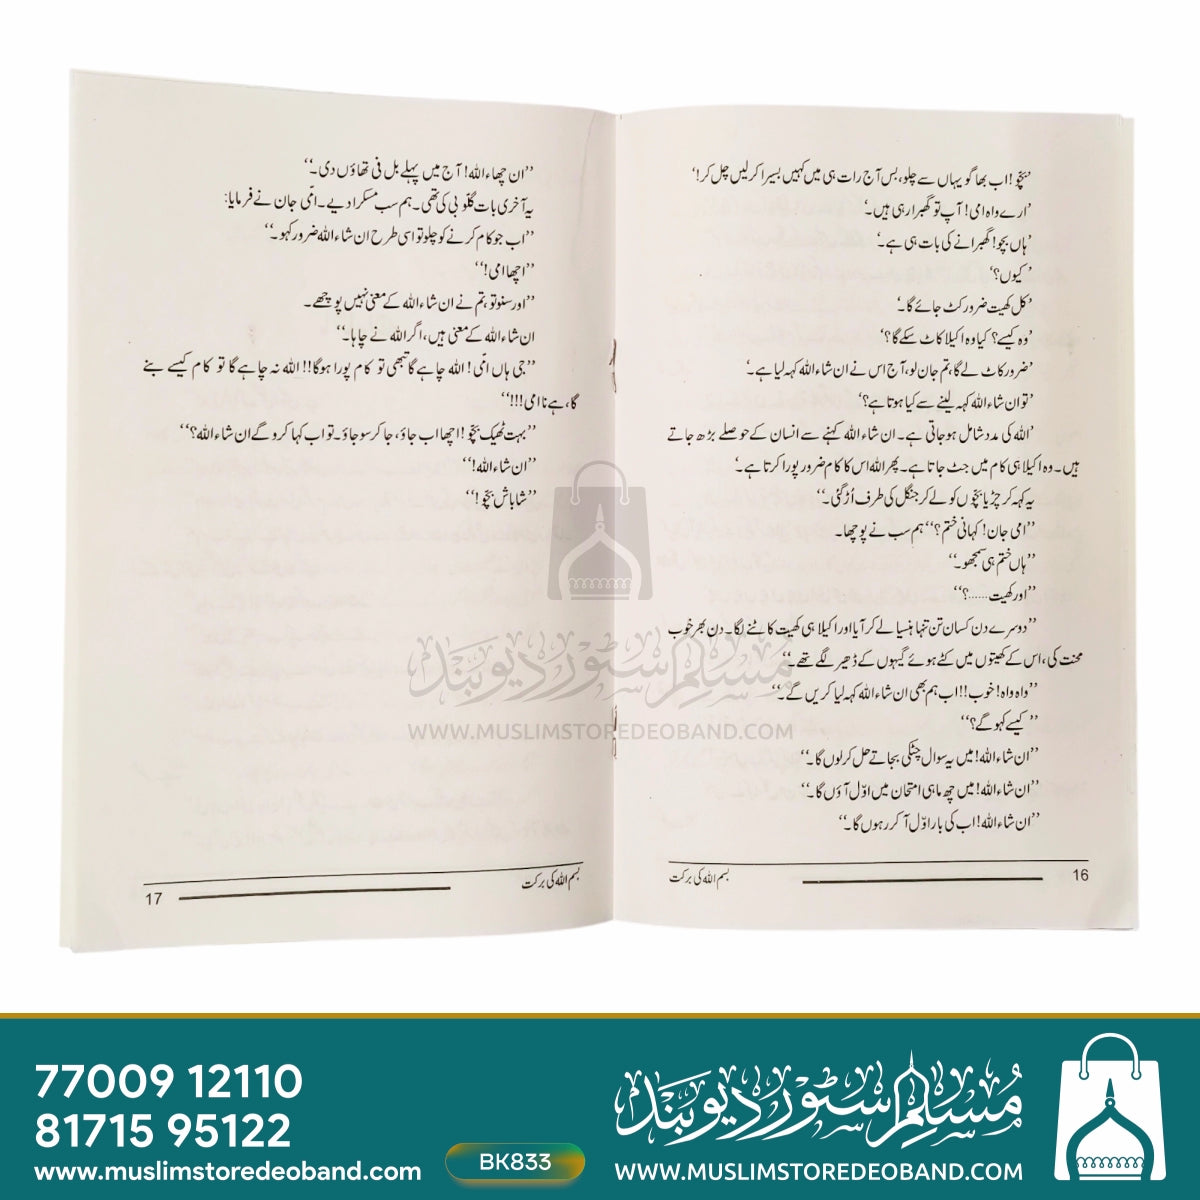 ’بچّو! اب بھاگو یہاں سے چلو، بس آج رات ہی میں کہیں بسیرا کر لیں چل کر!‘
’ارے واہ امی! آپ تو گھبرا رہی ہیں۔‘
’ہاں بچّو! گھبرانے کی بات ہی ہے۔‘
’کیوں؟‘
’کل کھیت ضرور کٹ جائے گا۔‘
’وہ کیسے؟ کیا وہ اکیلا کاٹ سکے گا؟‘
’ضرور کاٹ لے گا، تم جان لو، آج اس نے ان شاء اللہ کہہ لیا ہے۔‘
’تو ان شاء اللہ کہہ لینے سے کیا ہوتا ہے؟‘
’اللہ کی مدد شامل ہوجاتی ہے۔ ان شاء اللہ کہنے سے انسان کے حوصلے بڑھ جاتے
ہیں۔ وہ اکیلا ہی کام میں جٹ جاتا ہے۔ پھر اللہ اس کا کام ضرور پورا کرتا ہے۔‘
یہ کہہ کر چڑیا بچّوں کو لے کر جنگل کی طرف اُڑ گئی۔“
”امی جان! کہانی ختم؟“ ہم سب نے پوچھا۔
”ہاں ختم ہی سمجھو۔“
”اور کھیت......؟“
”دوسرے دن کسان تن تنہا ہنسیا لے کر آیا اور اکیلا ہی کھیت کاٹنے لگا۔ دن بھر خوب
محنت کی، اس کے کھیتوں میں کٹے ہوئے گیہوں کے ڈھیر لگے تھے۔“
”واہ واہ! خوب!! اب ہم بھی ان شاء اللہ کہہ لیا کریں گے۔“
”کیسے کہو گے؟“
”ان شاء اللہ! میں یہ سوال چٹکی بجاتے حل کرلوں گا۔“
”ان شاء اللہ! میں چھ ماہی امتحان میں اوّل آؤں گا۔“
”ان شاء اللہ! اب کی بار اوّل آ کر رہوں گا۔“
بسم اللہ کی برکت 16
”ان چھاء اللہ! آج میں پہلے بل فی تھاؤں دی۔“
یہ آخری بات گلّو بی کی تھی۔ ہم سب مسکرا دیے۔ امّی جان نے فرمایا:
”اب جو کام کرنے کو چلو تو اسی طرح ان شاء اللہ ضرور کہو۔“
”اچھا امی!“
”اور سنو تو، تم نے ان شاء اللہ کے معنی نہیں پوچھے۔
ان شاء اللہ کے معنی ہیں، اگر اللہ نے چاہا۔“
”جی ہاں امّی! اللہ چاہے گا تبھی تو کام پورا ہوگا!! اللہ نہ چاہے گا تو کام کیسے بنے
گا، ہے نا امی!!!“
”بہت ٹھیک بچّو! اچھا اب جاؤ، جا کر سو جاؤ۔ تو اب کہا کرو گے ان شاء اللہ؟“
”ان شاء اللہ!“
”شاباش بچّو!“
بسم اللہ کی برکت 17
مسلم سٹور دیوبند
WWW.MUSLIMSTOREDEOBAND.COM
77009 12110
81715 95122
www.muslimstoredeoband.com
BK833
مسلم سٹور دیوبند
WWW.MUSLIMSTOREDEOBAND.COM